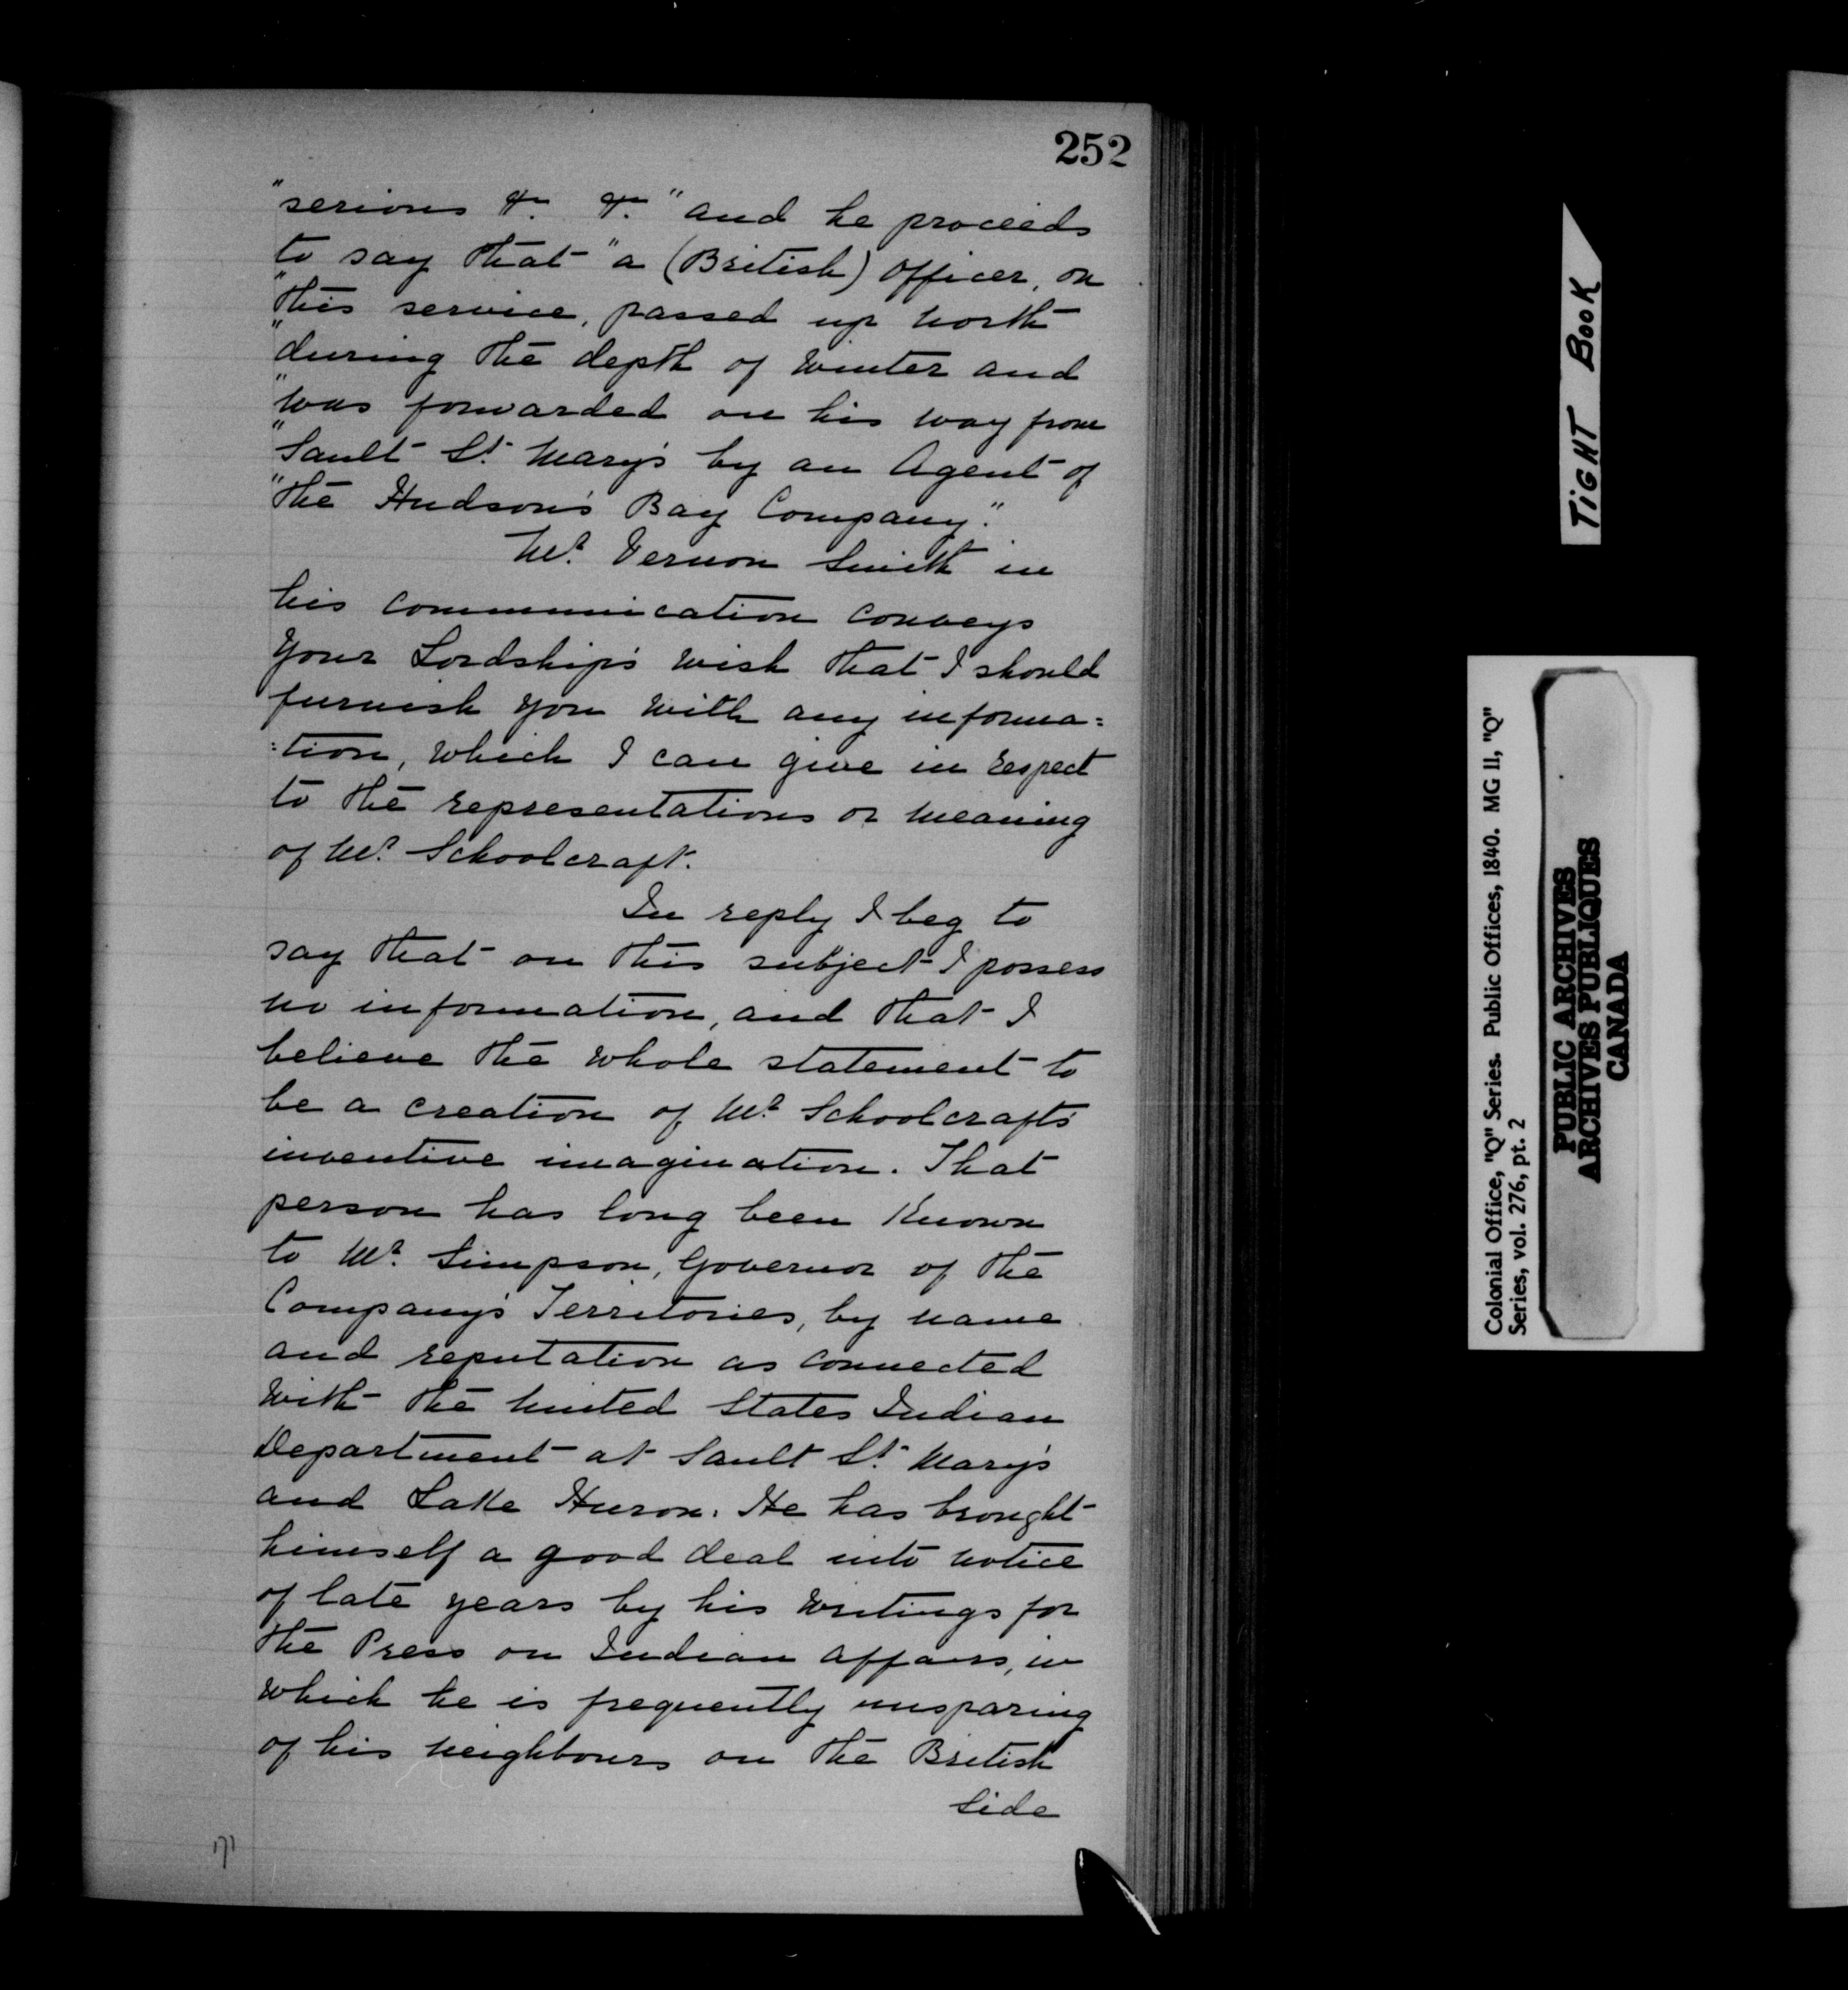 252
"serious &c. &c." and he proceeds
to say that "a (British) officer, on
"this service, passed up north
"during the depth of winter and
"was forwarded on his way from
"Sault St. Mary's by an Agent of
"the Hudson's Bay Company."
Mr. Vernon Smith in
his communication conveys
Your Lordship's wish that I should
furnish you with any informa=
=tion, which I can give in respect
to the representations or meaning
of Mr. Schoolcraft.
In reply I beg to
say that on this subject I possess
no information, and that I
believe the whole statement to
be a creation of Mr. Schoolcraft's
inventive imagination. That
person has long been known
to Mr. Simpson, Governor of the
Company's Territories, by name
and reputation as connected
with the United States Indian
Department at Sault St. Mary's
and Lake Huron. He has brought
himself a good deal into notice
of late years by his writings for
the Press on Indian affairs, in
which he is frequently unsparing
of his neighbours on the British
Side
TIGHT BOOK
Colonial Office, "Q" Series. Public Offices, 1840. MG 11, "Q"
Series, vol. 276, pt. 2
PUBLIC ARCHIVES
ARCHIVES PUBLIQUES
CANADA